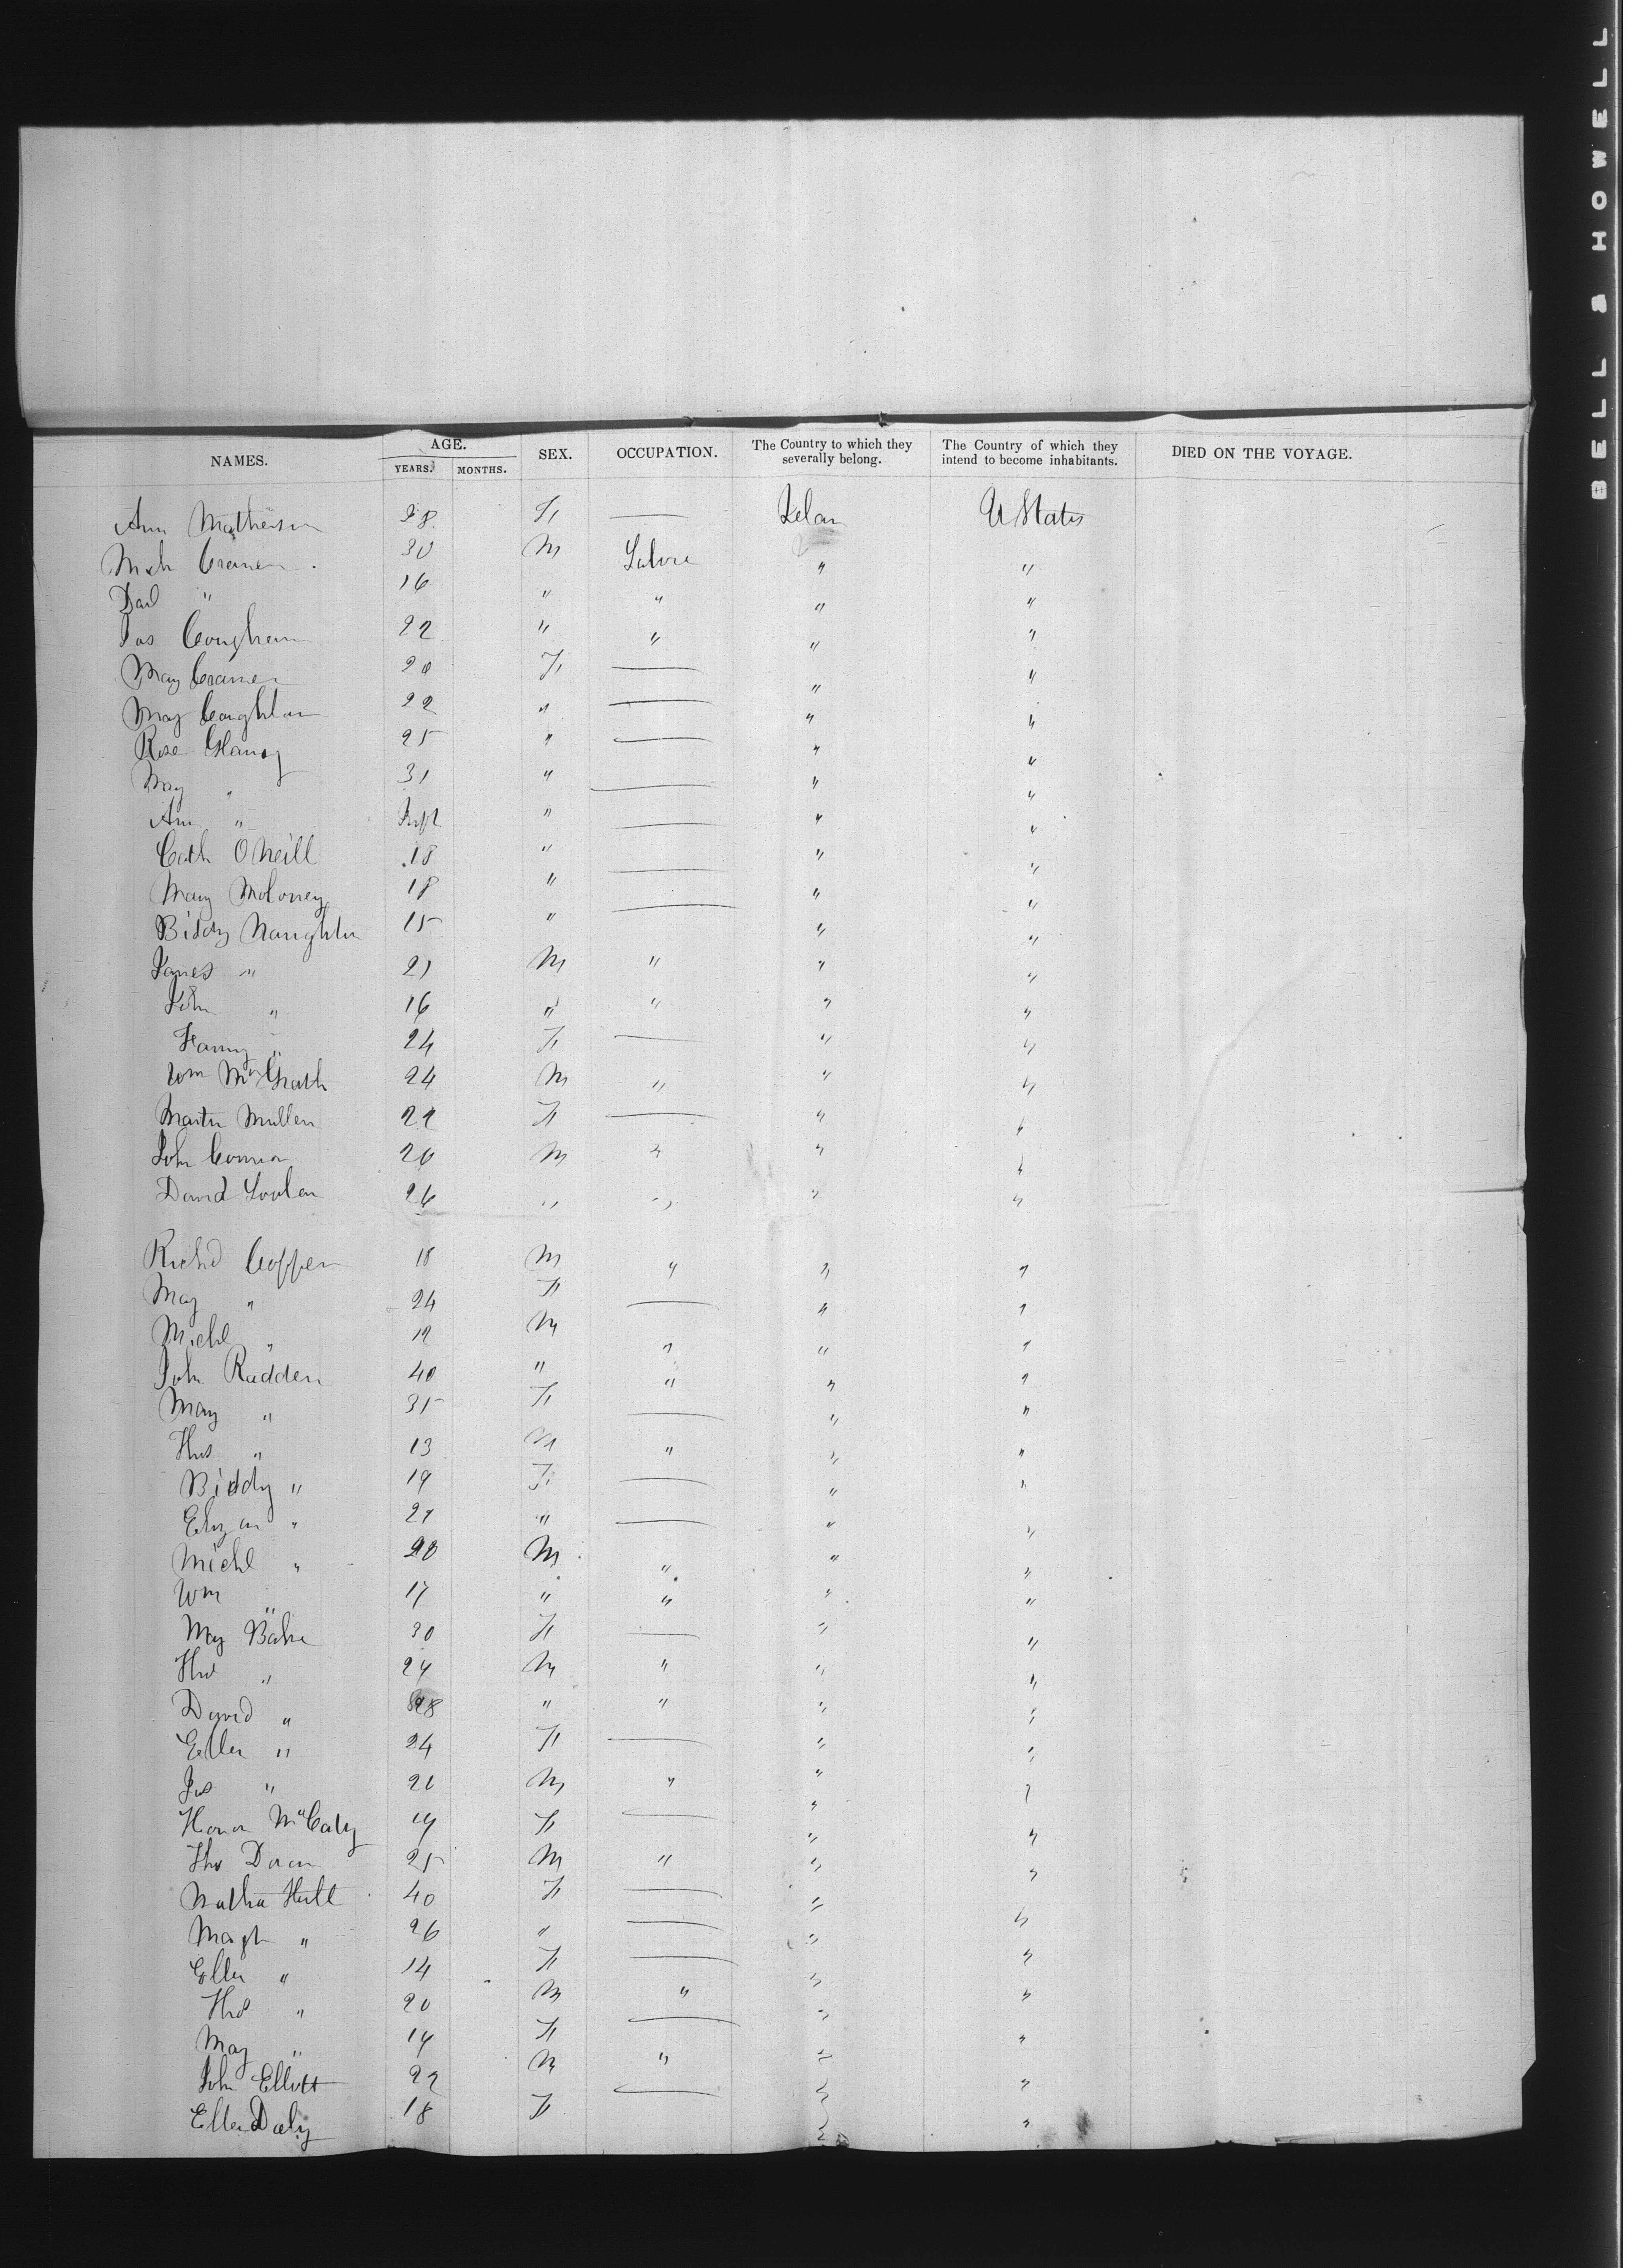 BELL & HOWELL
NAMES. AGE. YEARS. MONTHS. SEX. OCCUPATION. The Country to which they severally belong. The Country of which they intend to become inhabitants. DIED ON THE VOYAGE.
Ann Matherson 28 F — U States
Mich 30 M " "
" 16 " " " "
Jas 22 " " " "
May 20 F — " "
May Coughlan 22 " — " "
Rose Glancy 25 " — " "
May " 31 " — " "
Ann " " — " "
Cath O Neill 18 " — " "
Mary Moloney 18 " — " "
Biddy Naughten 15 " — " "
James " 21 M " " "
John " 16 " " " "
Fanny " 24 F — " "
Wm McGrath 24 M " " "
Martin Mullen 22 F — " "
John 20 M " " "
David 26 " " " "
Richd 18 M " " "
May " 24 F — " "
Michl " 12 M " " "
John Radden 40 " " " "
May " 35 F — " "
Thos " 13 M " " "
Biddy " 19 F — " "
" 21 " — " "
Michl " 20 M " " "
Wm " 17 " " " "
May 30 F — " "
Thos " 24 M " " "
David " " " " "
Ellen " 24 F — " "
Jas " 20 M " " "
Honor 19 F — " "
Thos Doran 25 M " " "
40 F — " "
Magt " 26 " — " "
Ellen " 14 F — " "
Thos " 20 M " " "
May " 14 F — " "
John Elliott 22 M " " "
Ellen Daly 18 F — " "